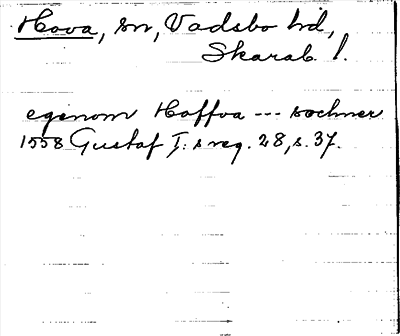 Hova, sn, Vadsbo hd,
Skarab. l.
egenom Haffva --- sochner
1558 Gustaf I:s reg. 28, s. 37.